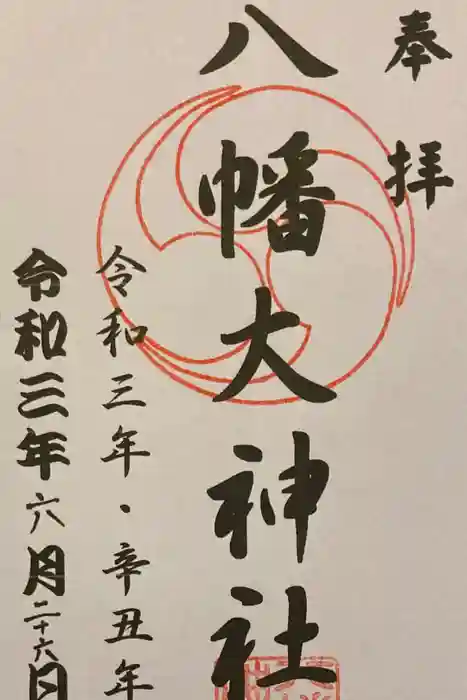 奉拝
八幡大神社
令和三年・辛丑年
令和三年六月二十六日